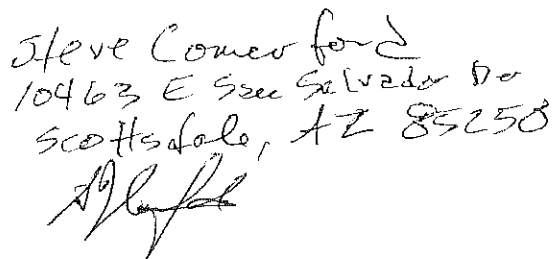 Steve Comerford
10463 E San Salvador Dr
Scottsdale, AZ 85258